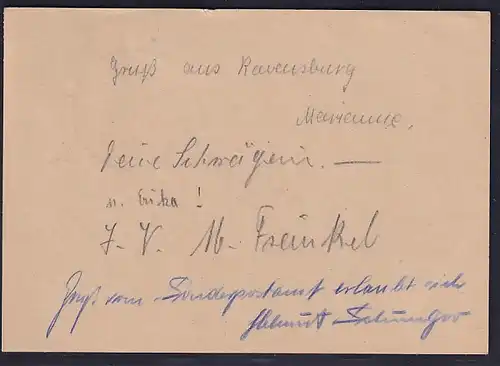 Gruß aus Ravensburg
Marianne,
Deine Schwägerin. —
u. Erika !
M. Fränkel
Gruß vom Sonderpostamt erlaubt sich
Helmut